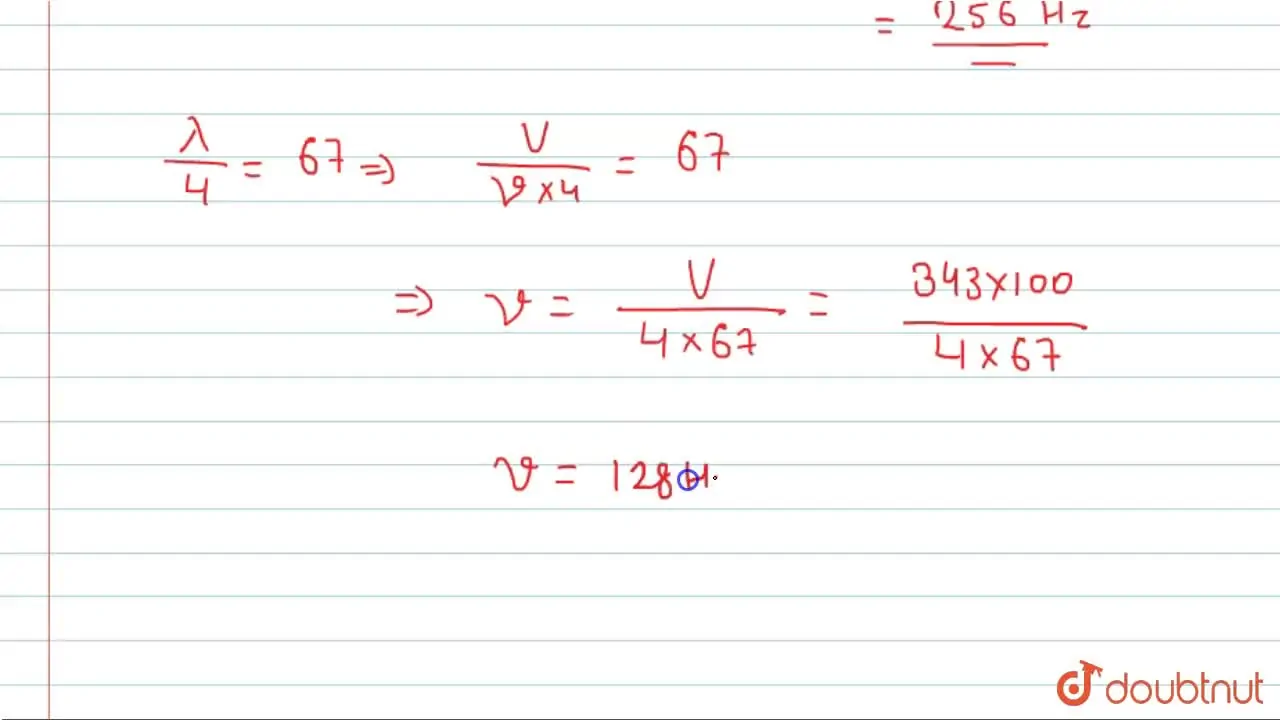 = 256 Hz
λ/4 = 67 ⇒ V/(ν×4) = 67
⇒ ν = V/(4×67) = 343×100/(4×67)
ν = 128 H
doubtnut